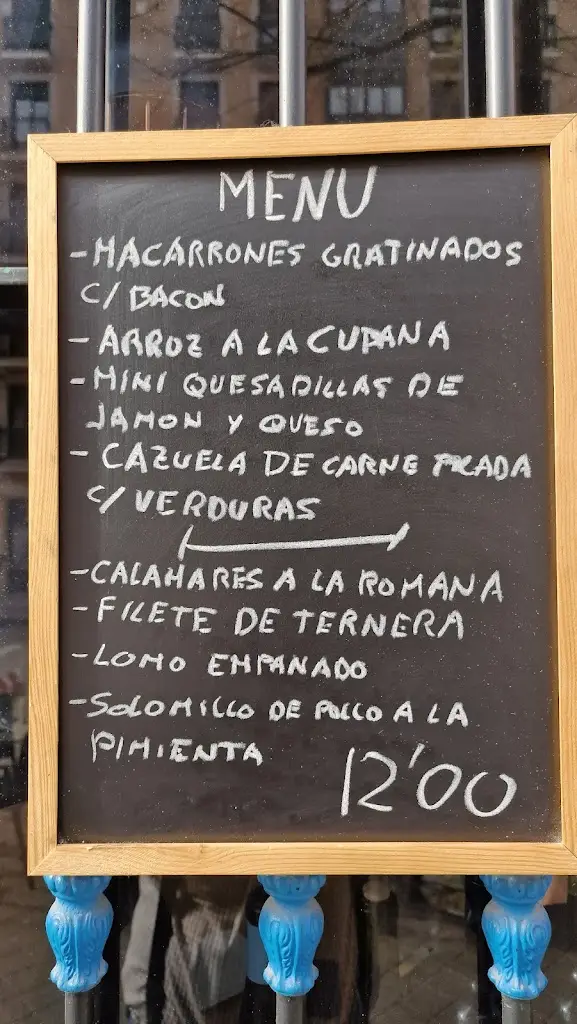 MENU
-MACARRONES GRATINADOS
C/ BACON
- ARROZ A LA CUBANA
- MINI QUESADILLAS DE
JAMON Y QUESO
- CAZUELA DE CARNE PICADA
C/ VERDURAS
-CALAMARES A LA ROMANA
- FILETE DE TERNERA
-LOMO EMPANADO
-SOLOMILLO DE POLLO A LA
PIMIENTA
12'00